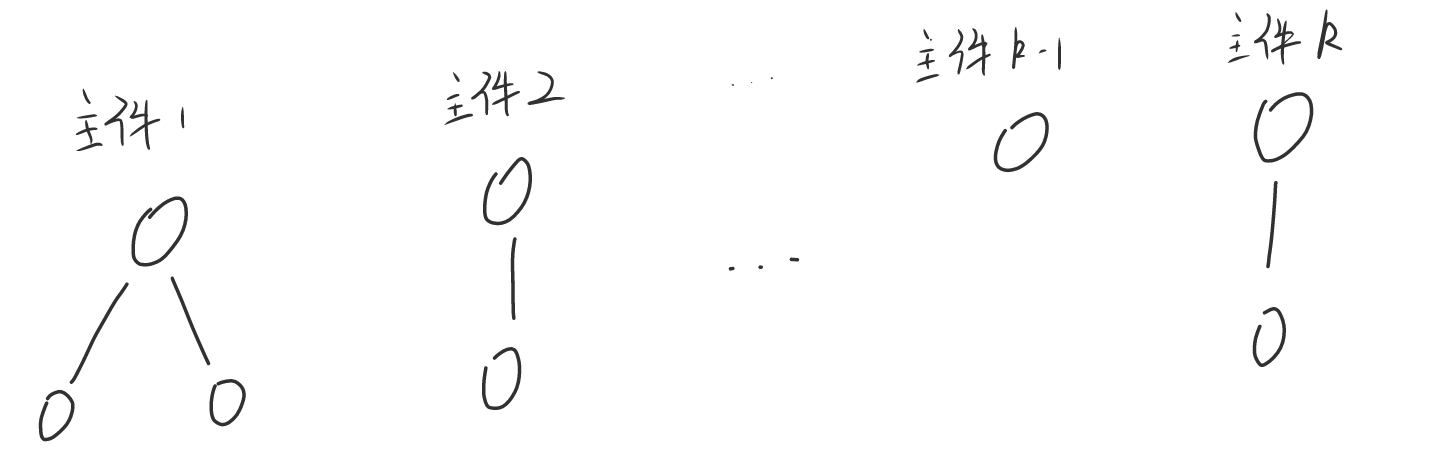 主件1
主件2
...
主件k-1
主件k
...